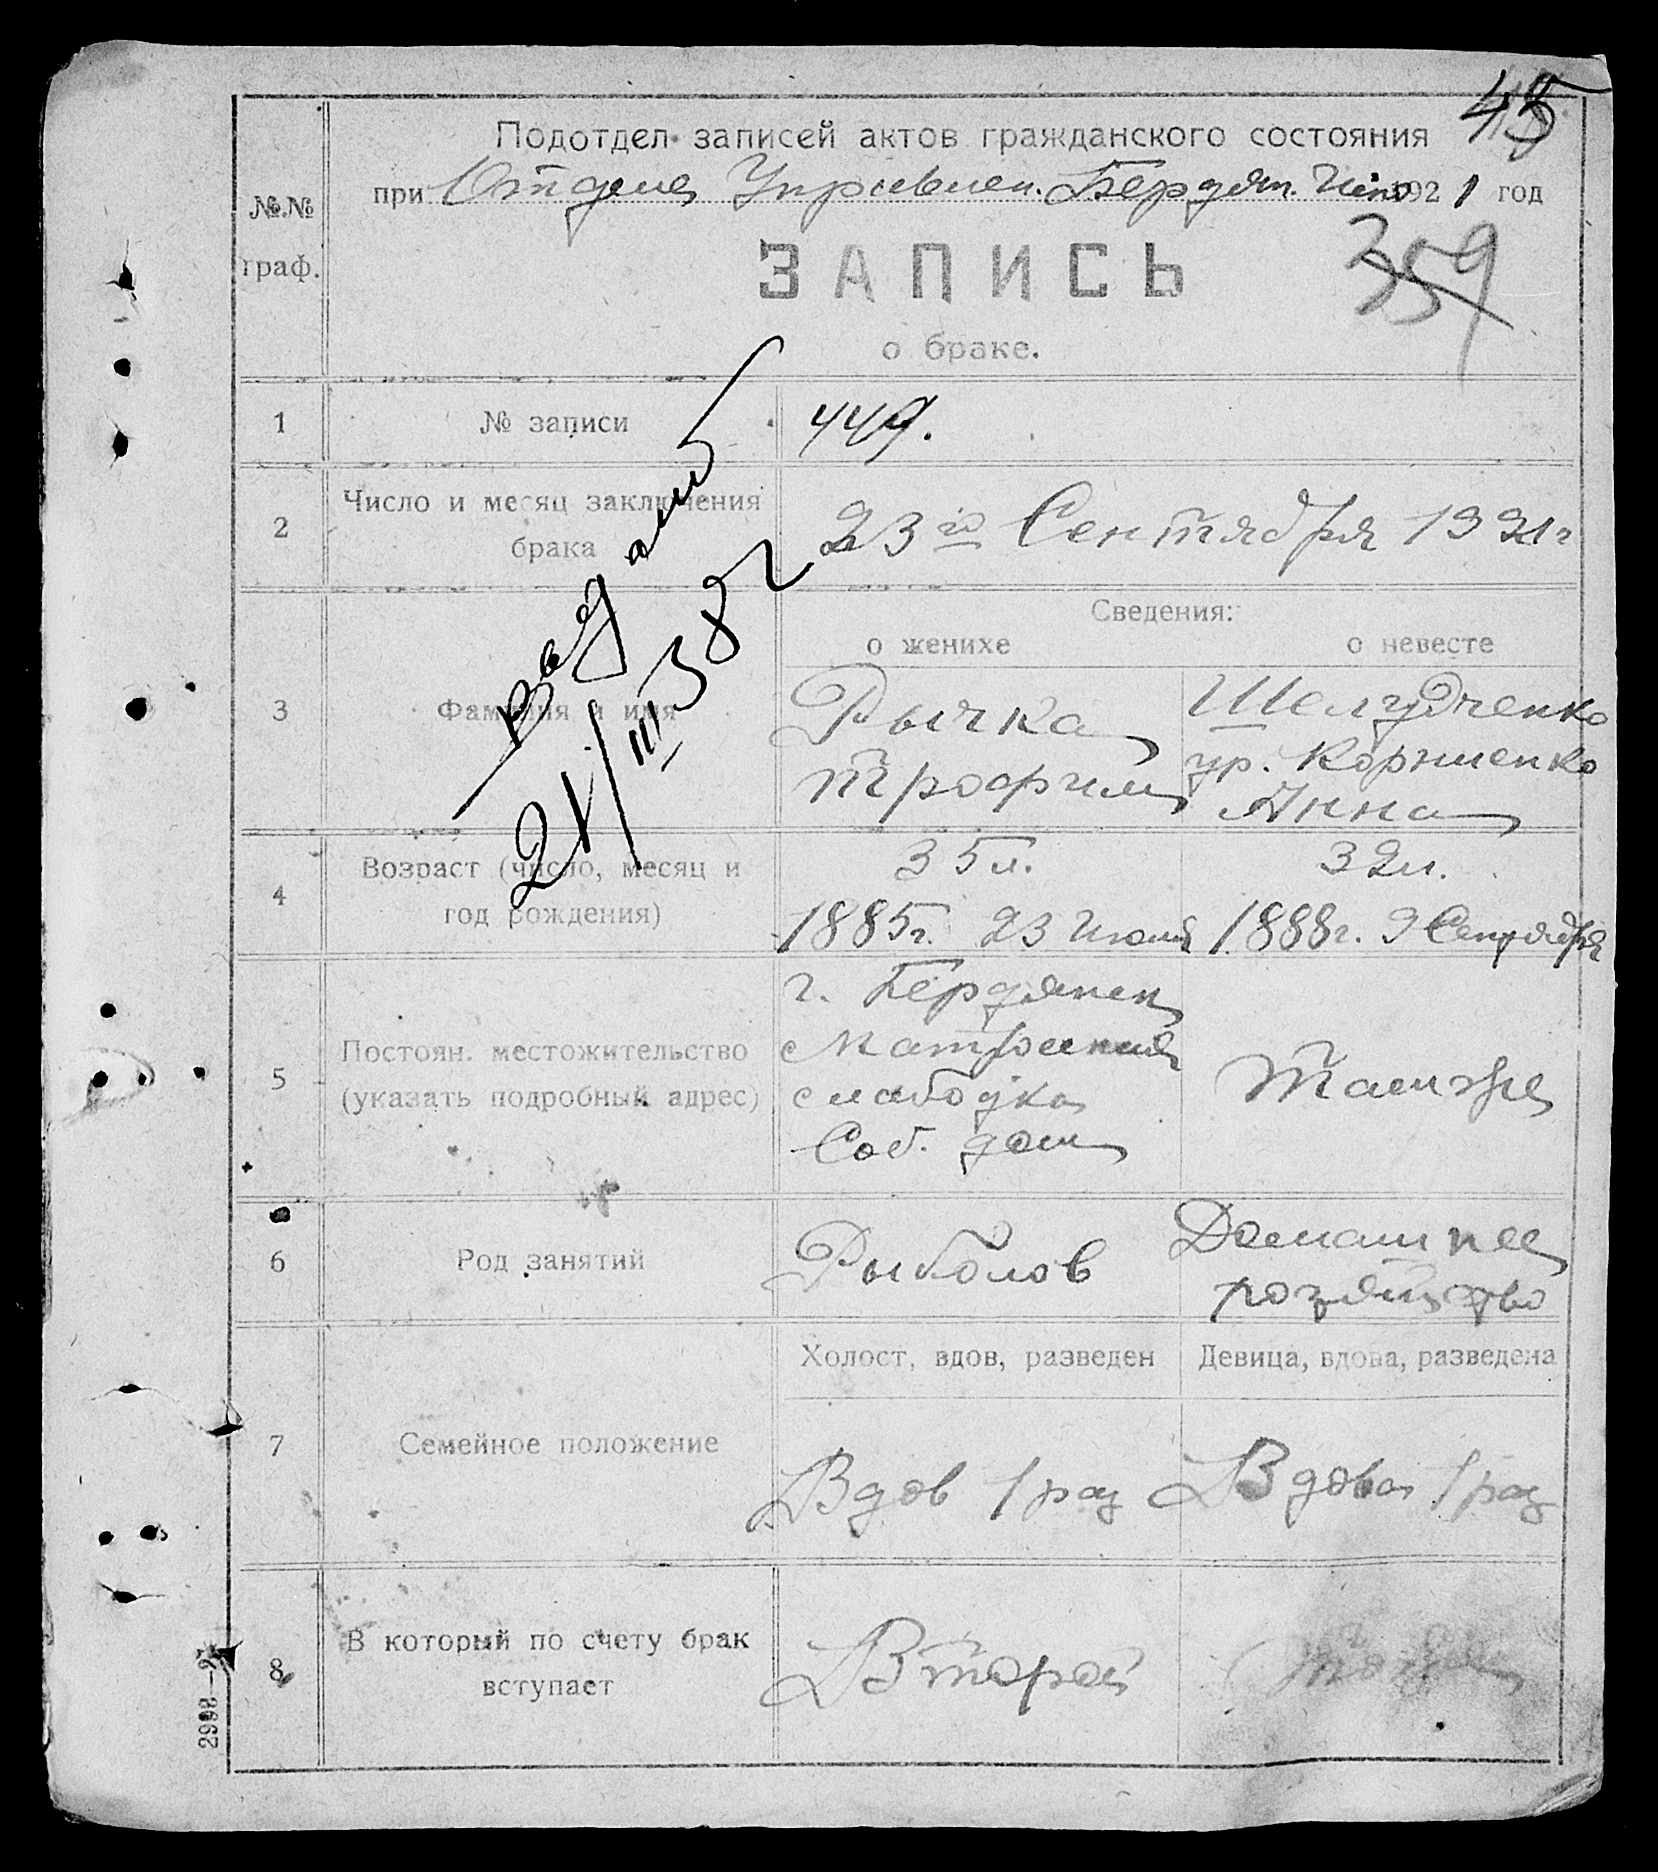 45
Подотдел записей актов гражданского состояния
при Отделе Управлен. Бердян. 1921 год
№№ граф.
ЗАПИСЬ
359
о браке.
1 № записи 449.
2 Число и месяц заключения брака 23го Сентября 1921г
Сведения:
о женихе о невесте
3 Фамилия и имя
Рычка
Трофим
Шелудченко
ур. Корниенко
Анна
21/III 38г
4 Возраст (число, месяц и год рождения)
35л. 32л.
1885г. 23 Июля 1888г. 9 Сентября
5 Постоян. местожительство (указать подробный адрес)
г. Бердянск
Матросская
слабодка
Соб. дом
Там же
6 Род занятий
Рыболов
Домашнее
хозяйство
Холост, вдов, разведен Девица, вдова, разведена
7 Семейное положение
Вдов 1 раз Вдова 1 раз
8 В который по счету брак вступает
Второй
2998-2